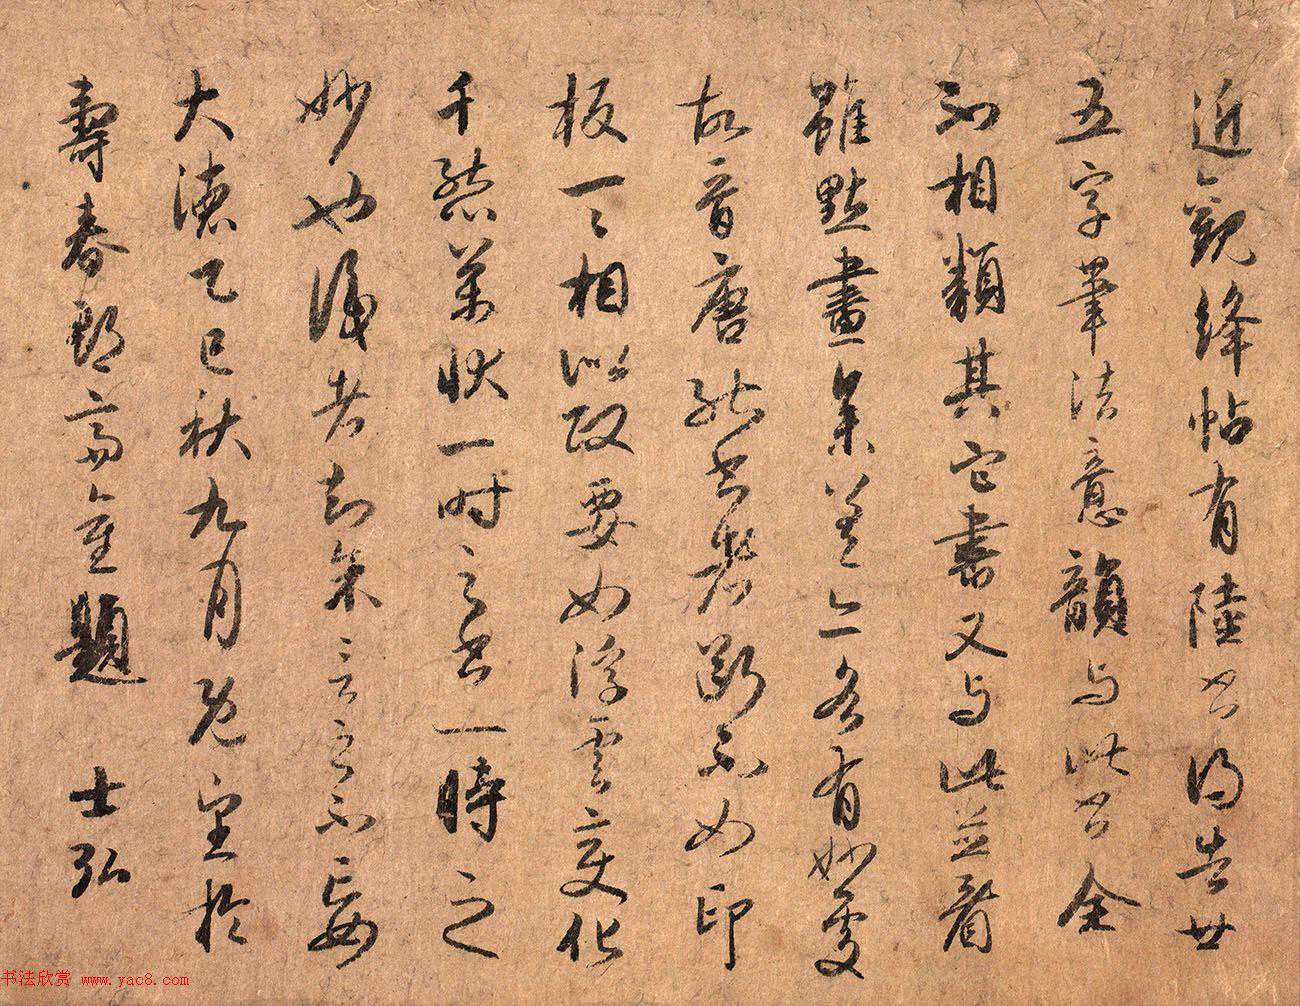 近觀絳帖有陸書得告廿
五字筆法意韻与此書全
不相類其它書又与此並看
雖點畫參差亦各有妙處
故晉唐能書者斷不如印
板一一相似政要如浮雲變化
千態萬狀一時之書一時之
妙也識者知余言之不妄
大德乙巳秋九月既望於
壽春郡齋重題 士弘
书法欣赏 www.yac8.com